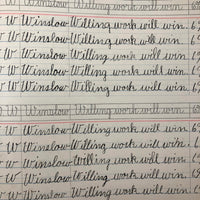 W Winslow Willing work will win. 6
W Winslow Willing work will win.
W Winslow Willing work will win. 6
W Winslow Willing work will win. 6
W Winslow Willing work will win.
W Winslow Willing work will win. 6
W Winslow Willing work will win.
W Winslow Willing work will win.
W Winslow Willing work will win.
W Winslow Willing work will win.
W Winslow Willing work will win.
W Winslow Willing work will win.